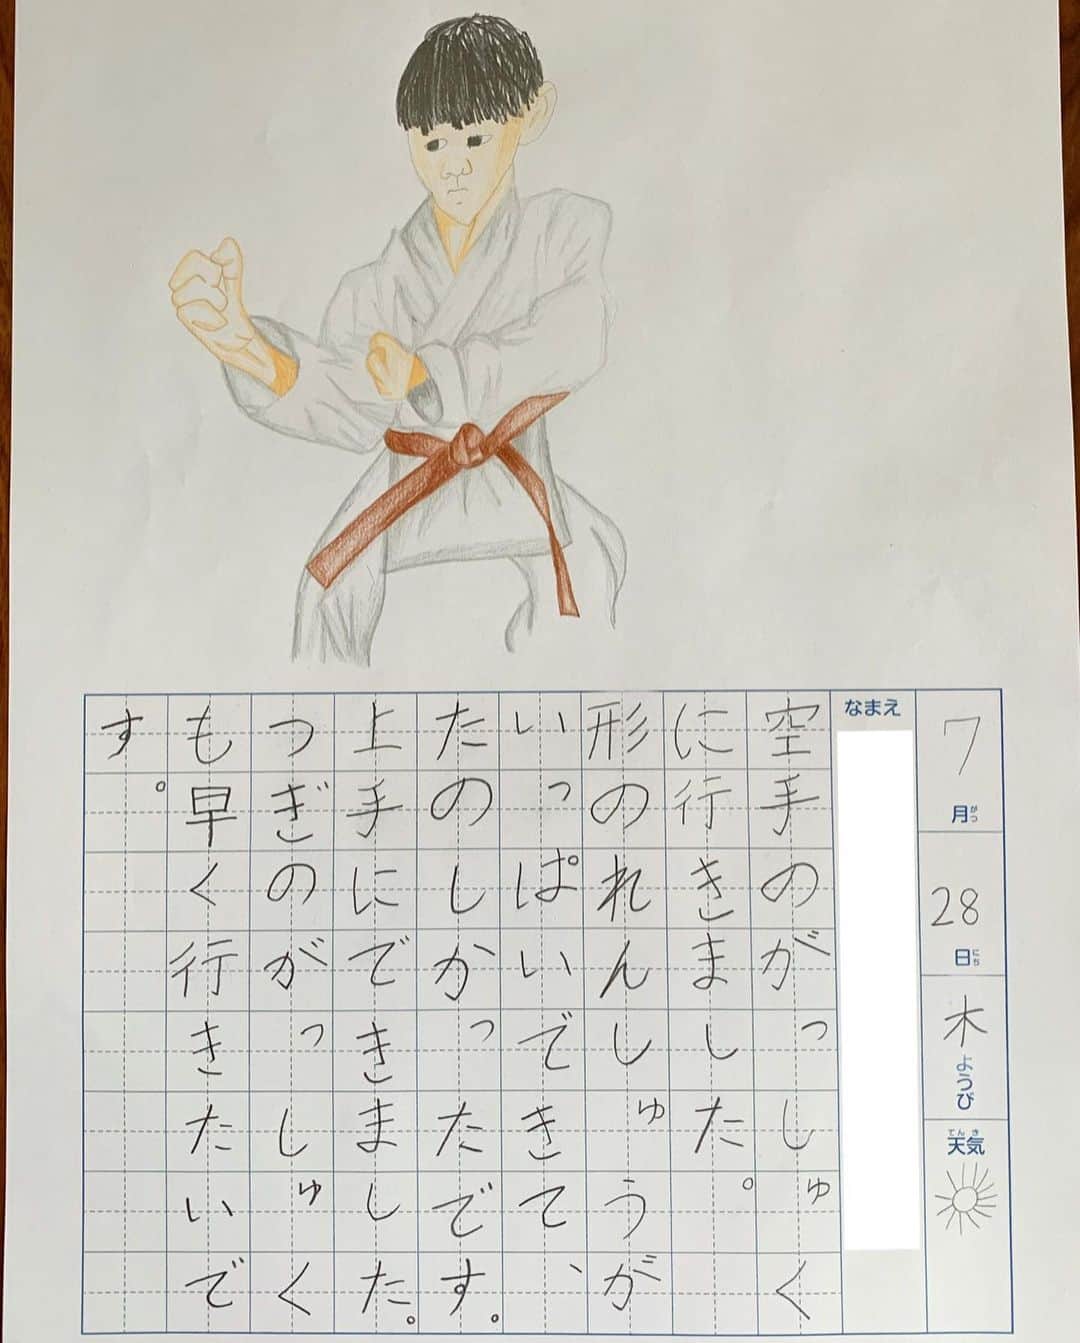 7月がつ
28日にち
木ようび
天気てんき
なまえ
空手のがっしゅく
に行きました。
形のれんしゅうが
いっぱいできて、
たのしかったです。
上手にできました。
つぎのがっしゅく
も早く行きたいで
す。